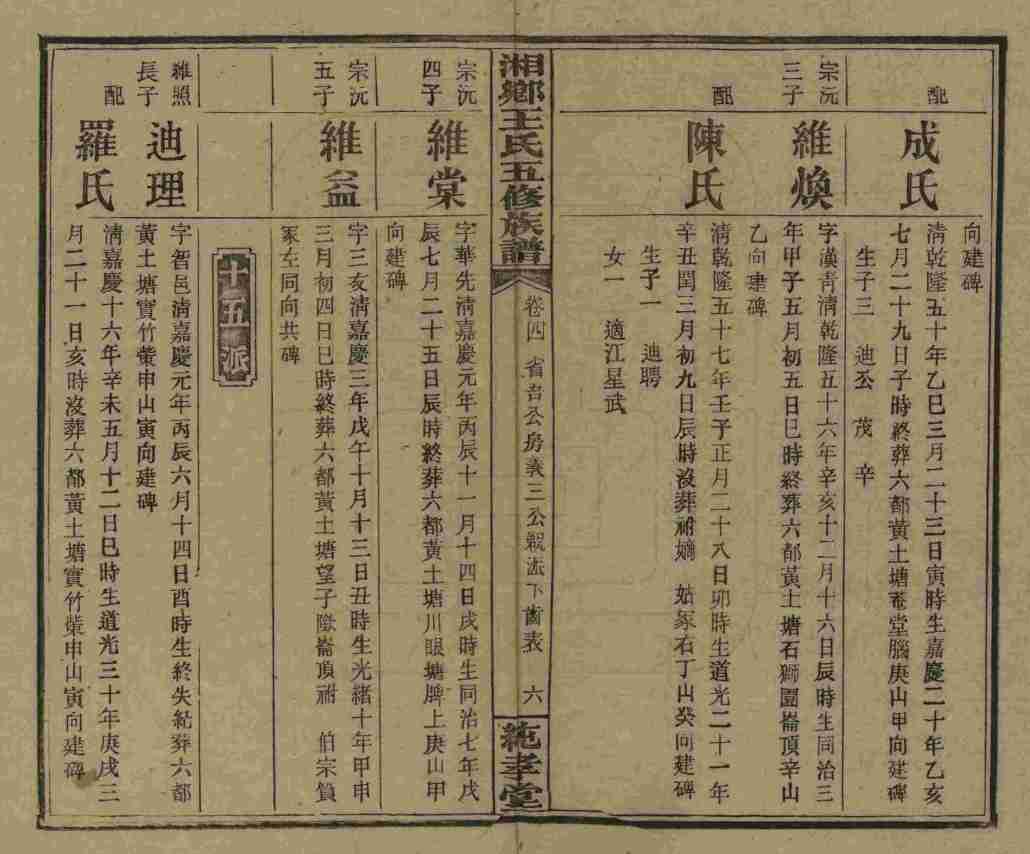 向建碑
配
成氏
清乾隆五十年乙巳三月二十三日寅時生嘉慶二十年乙亥
七月二十九日子時終葬六都黃土塘菴堂腦庚山甲向建碑
生子三 迪公 茂 辛
宗沅
三子
維煥
字漢青清乾隆五十六年辛亥十二月十六日辰時生同治三
年甲子五月初五日巳時終葬六都黃土塘石獅園崙頂辛山
乙向建碑
配
陳氏
清乾隆五十七年壬子正月二十八日卯時生道光二十一年
辛丑閏三月初九日辰時沒葬祔嫡 姑冢右丁山癸向建碑
生子一 迪聘
女一 適江星武
湘鄉王氏五修族譜
卷四 省吾公房義三公親派下齒表 六
純孝堂
宗沅
四子
維棠
字華先清嘉慶元年丙辰十一月十四日戌時生同治七年戊
辰七月二十五日辰時終葬六都黃土塘川眼塘脾上庚山甲
向建碑
宗沅
五子
維益
字三亥清嘉慶三年戊午十月十三日丑時生光緒十年甲申
三月初四日巳時終葬六都黃土塘望子崙頂祔 伯宗貧
冢左同向共碑
十五派
維照
長子
迪理
字智邑清嘉慶元年丙辰六月十四日酉時生終失紀葬六都
黃土塘實竹塋申山寅向建碑
配
羅氏
清嘉慶十六年辛未五月十二日巳時生道光三十年庚戌三
月二十一日亥時沒葬六都黃土塘實竹塋申山寅向建碑